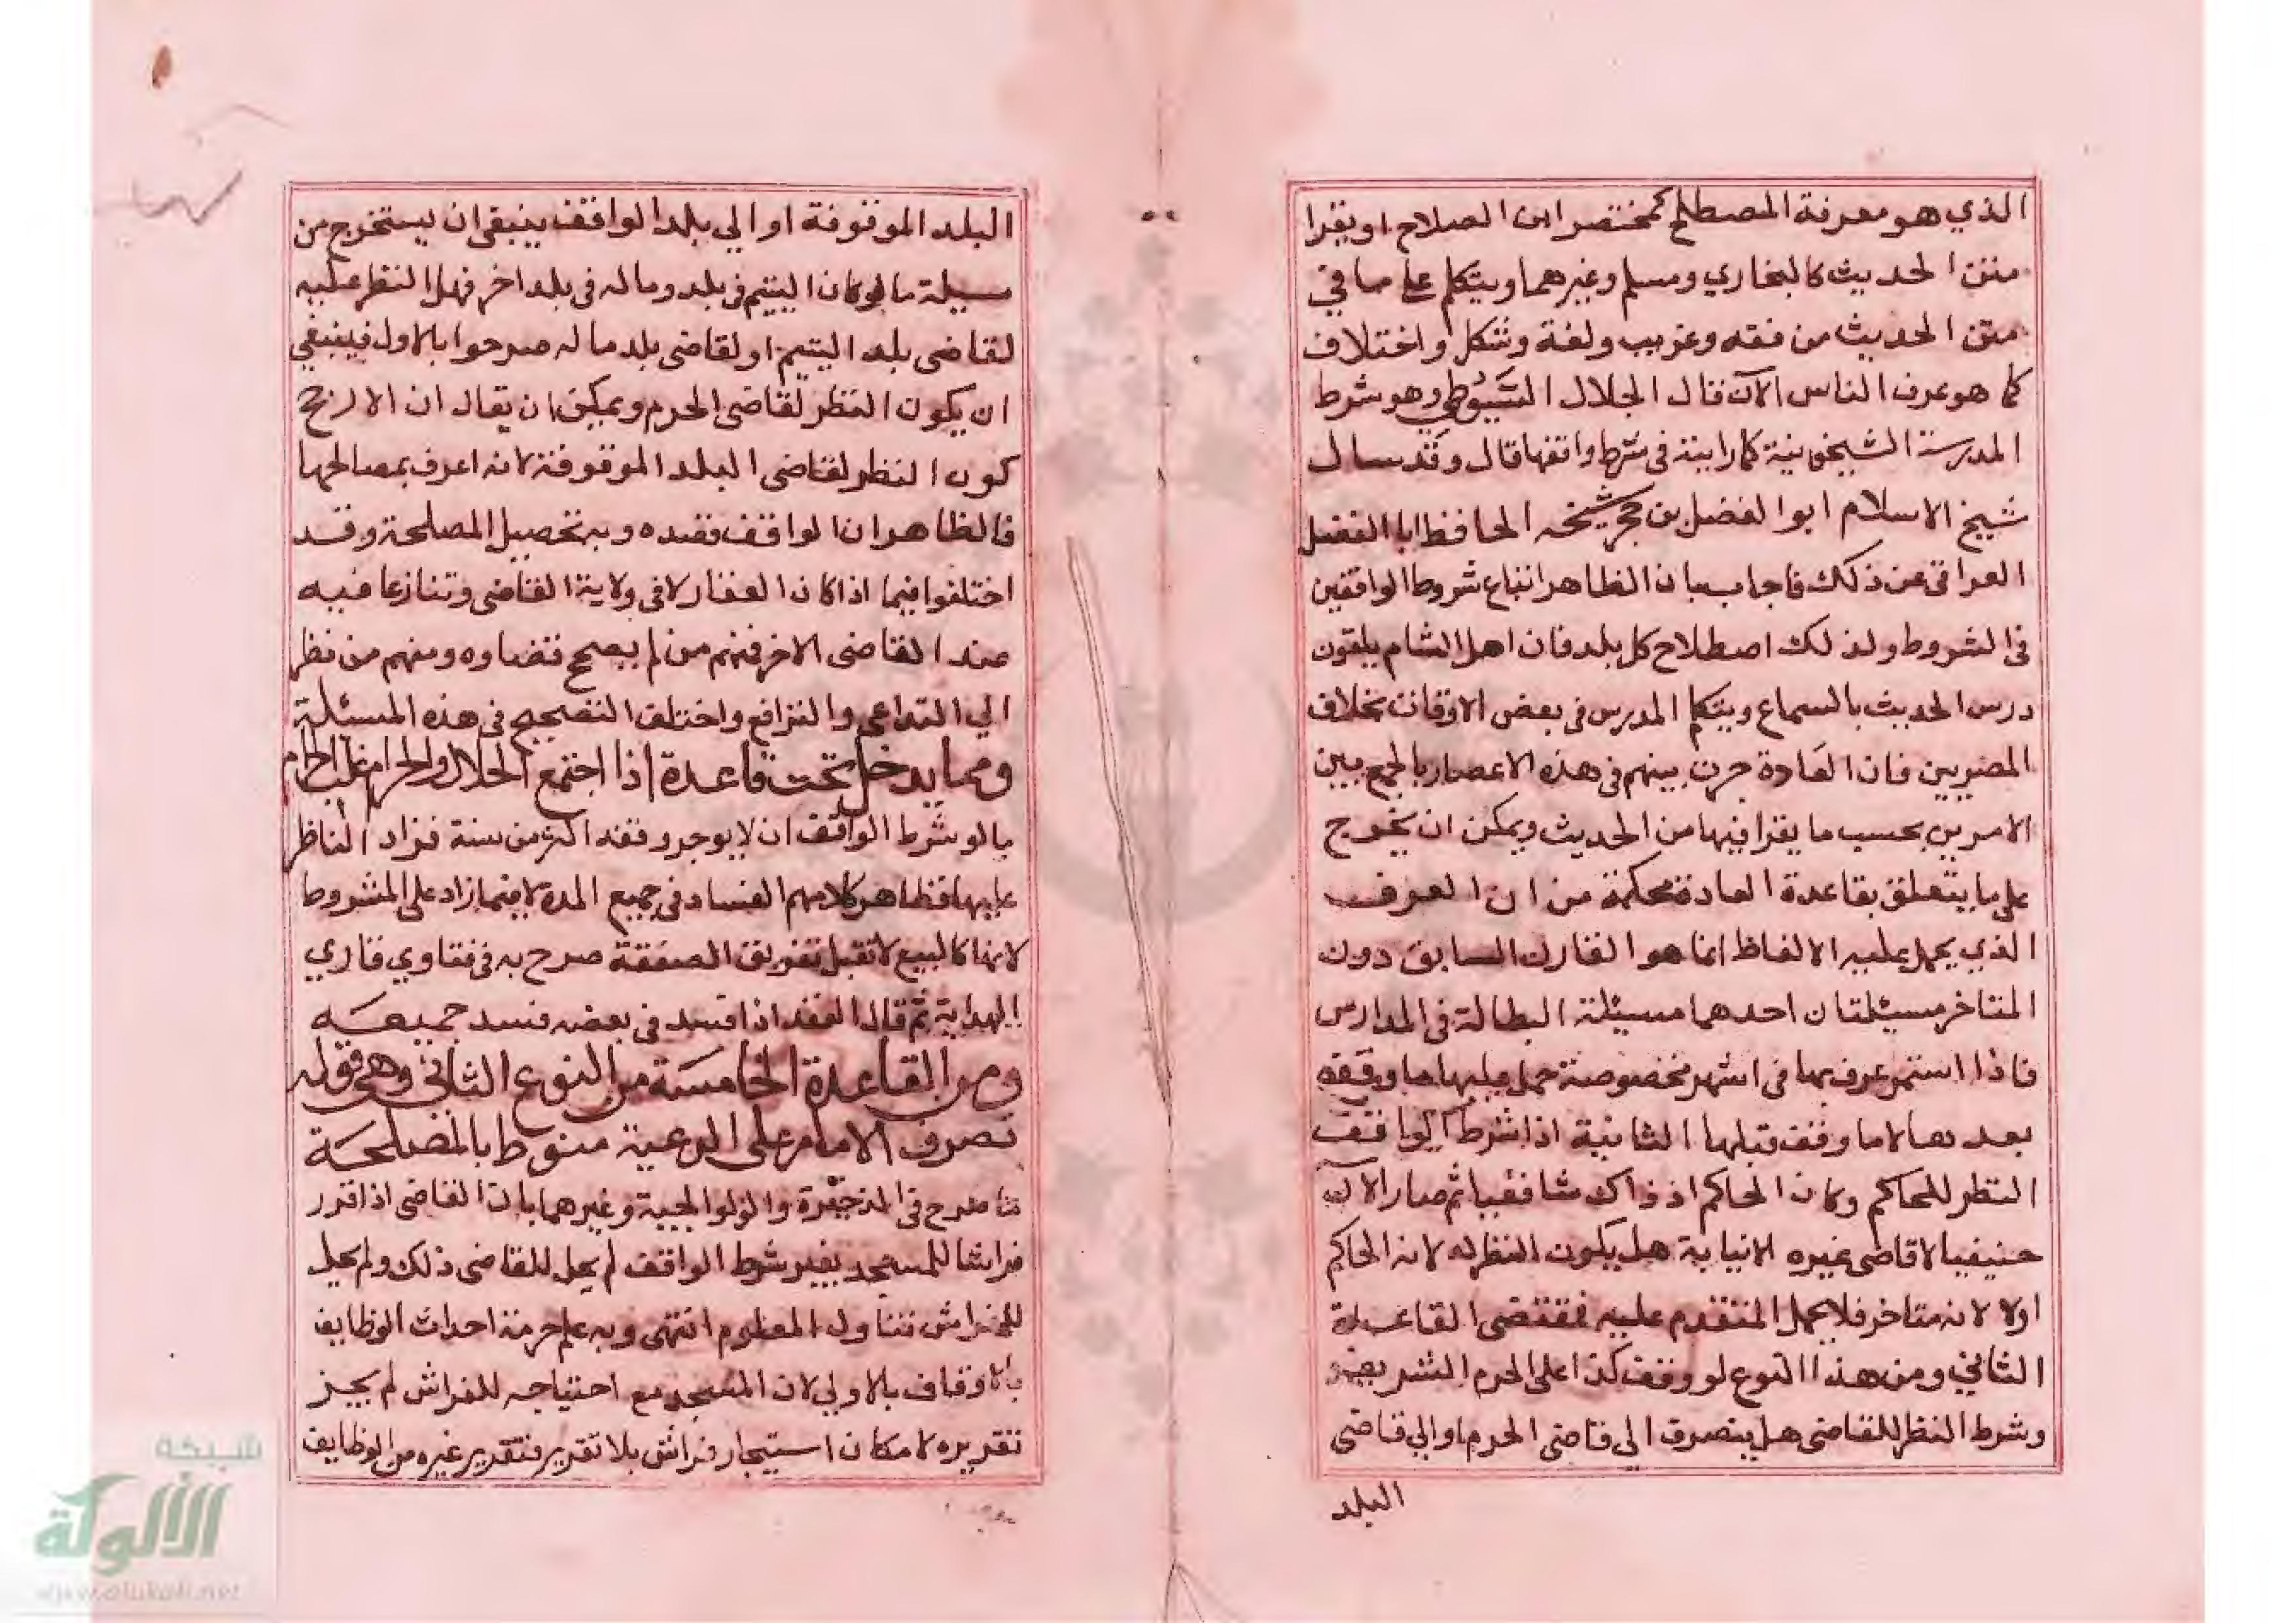 الذي هو معرفة المصطلح كمختصر ابن الصلاح او يقرا
متن الحديث كالبخاري ومسلم وغيرهما ويتكلم على ما في
متن الحديث من فقه وغريب ولغة وشكل واختلاف
كما هو عرف الناس الآن قال الجلال السَّيُوطي وهو شرط
المدرسة الشيخونية كما رايته في شرط واقفها قال وقد سال
شيخ الاسلام ابو الفضل بن حجر شيخه الحافظ ابا الفضل
العراقي عن ذلك فاجاب بان الظاهر اتباع شروط الواقفين
في الشروط ولذلك اصطلاح كل بلد فان اهل الشام يلقون
درس الحديث بالسماع ويتكلم المدرس في بعض الاوقات بخلاف
المصريين فان العادة جرت بينهم في هذه الاعصار بالجمع بين
الامرين بحسب ما يقرا فيها من الحديث ويمكن ان يخرج
على ما يتعلق بقاعدة العادة محكمة من ان العرف
الذي يحمل عليه الالفاظ انما هو القارن السابق دون
المتاخر مسئلتان احدهما مسئلة البطالة في المدارس
فاذا استمر عرف بها في اشهر مخصوصة حمل عليها ما وقفه
بعدها لا ما وقف قبلها الثانية اذا شرط الواقف
النظر للحاكم وكان الحاكم اذ ذاك شافعيا ثم صار الآن
حنيفيا لا قاضي غيره الا نيابة هل يكون النظر له لانه الحاكم
اولا لانه متاخر فلا يحمل المتقدم عليه فمقتضى القاعدة
الثاني ومن هذا النوع لو وقف كذا على الحرم الشريف
وشرط النظر للقاضي هل ينصرف الى قاضي الحرم او الي قاضي
البلد
البلد الموقوفة او الي بلد الواقف ينبغي ان يستخرج من
مسيلة ما لو كان اليتيم في بلد وماله في بلد اخر فهل النظر عليه
لقاضي بلد اليتيم او لقاضي بلد ماله صرحوا بالاول فينبغي
ان يكون النظر لقاضي الحرم ويمكن ان يقال ان الارجح
كون النظر لقاضي البلد الموقوفة لانه اعرف بمصالحها
فالظاهر ان الواقف قصده وبه تحصيل المصلحة وقد
اختلفوا فيما اذا كان العقار لا في ولاية القاضي وتنازعا فيه
عند القاضي الاخر فمنهم من لم يصحح قضاوه ومنهم من نظر
الي التداعي والترافع واختلف التصحيح في هذه المسئلة
ومما يدخل تحت قاعدة اذا اجتمع الحلال والحرام غلب الحرام
ما لو شرط الواقف ان لا يوجر وقفه اكثر من سنة فزاد الناظر
عليها فظاهر كلامهم الفساد في جميع المدة لا فيما زاد على المشروط
لانها كالبيع لا تقبل تفريق الصفقة صرح به في فتاوي قاري
الهداية ثم قال العقد اذا فسد في بعضه فسد جميعه
ومن القاعدة الخامسة من النوع الثاني وهي قوله
تصرف الامام على الرعية منوط بالمصلحة
ما صرح في الذخيرة والولوالجية وغيرهما بان القاضي اذا قرر
فراشا للمسجد بغير شرط الواقف لم يحل للقاضي ذلك ولم يحل
للفراش تناول المعلوم انتهى وبه علم حرمة احداث الوظايف
بالاوقاف بالاولي لان المسجد مع احتياجه للفراش لم يجز
تقريره لامكان استيجار فراش بلا تقرير فتقرير غيره من الوظايف
شبكة
الألوكة
www.alukah.net